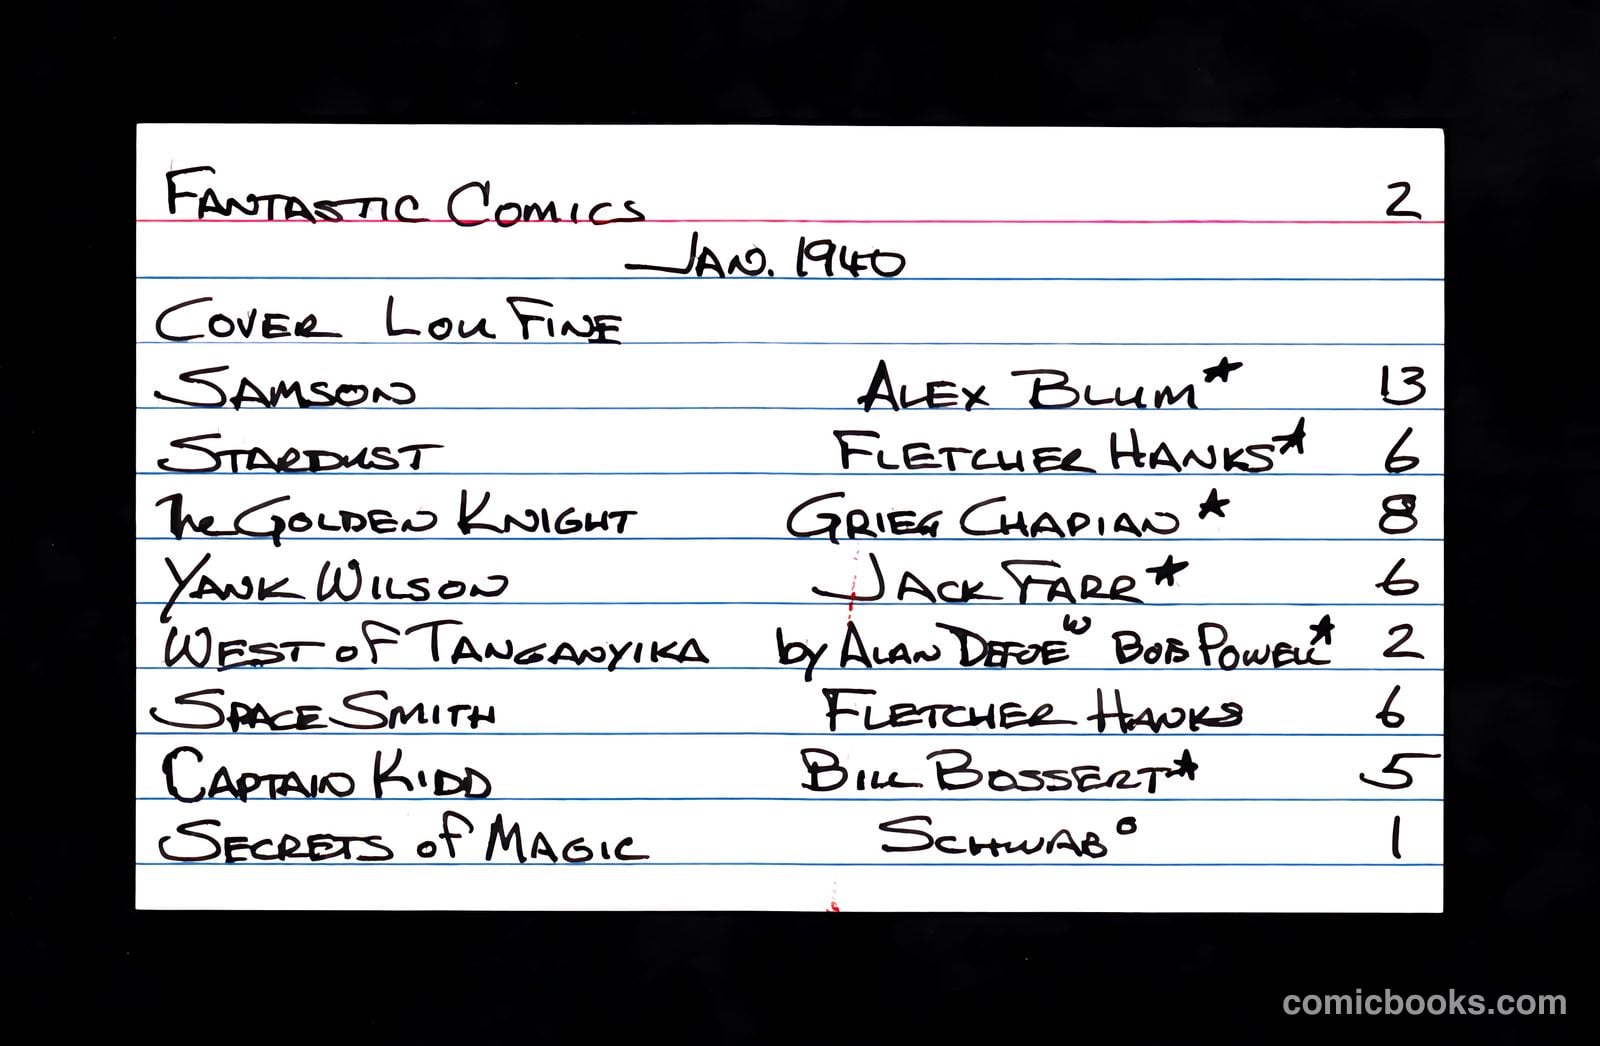 FANTASTIC COMICS 2
JAN. 1940
COVER LOU FINE
SAMSON ALEX BLUM★ 13
STARDUST FLETCHER HANKS★ 6
The GOLDEN KNIGHT GRIEG CHAPIAN ★ 8
YANK WILSON JACK FARR★ 6
WEST OF TANGANYIKA by ALAN DEFOE w BOB POWELL★ 2
SPACE SMITH FLETCHER HANKS 6
CAPTAIN KIDD BILL BOSSERT★ 5
SECRETS of MAGIC SCHWAB° 1
comicbooks.com